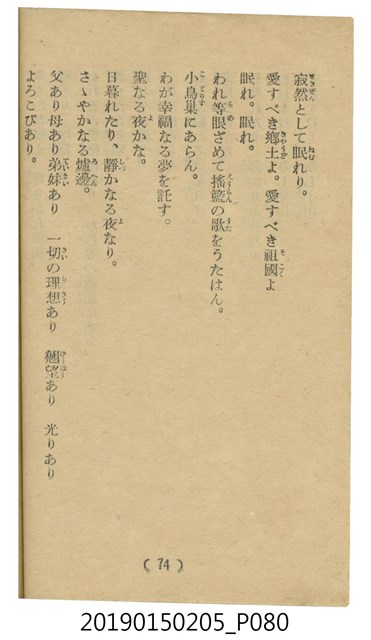 寂然として眠れり。
愛すべき郷土よ。愛すべき祖國よ
眠れ。眠れ。
われ等眼ざめて搖籃の歌をうたはん。
小鳥巣にあらん。
わが幸福なる夢を託す。
聖なる夜かな。
日暮れたり、靜かなる夜なり。
さゝやかなる爐邊。
父あり母あり弟妹あり 一切の理想あり 翹望あり 光りあり
よろこびあり。
(74)
20190150205_P080